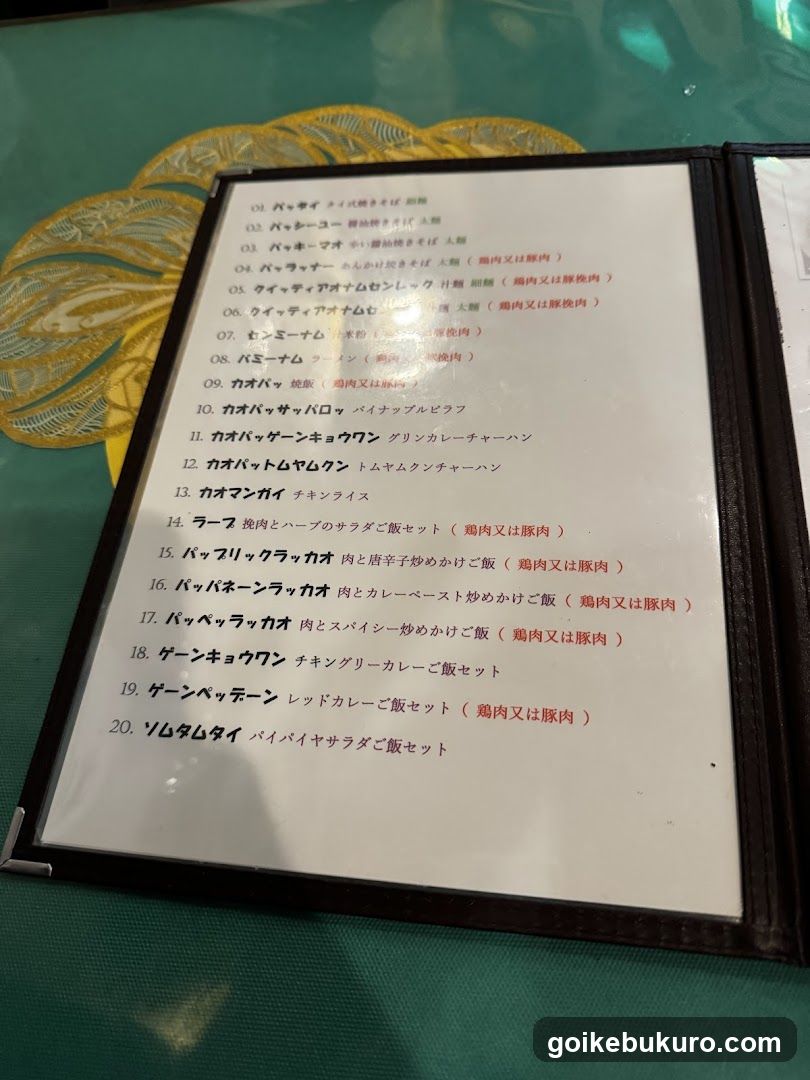 01. パッタイ タイ式焼きそば 細麺
02. パッシーユー 醤油焼きそば 太麺
03. パッキーマオ 辛い醤油焼きそば 太麺
04. パッラッナー あんかけ焼きそば 太麺 ( 鶏肉又は豚肉 )
05. クイッティアオナムセンレック 汁麺 細麺 ( 鶏肉又は豚挽肉 )
06. クイッティアオナムセ 麺 太麺 ( 鶏肉又は豚挽肉 )
07. センミーナム 汁米粉 ( は豚挽肉 )
08. バミーナム ラーメン ( 鶏肉 豚挽肉 )
09. カオパッ 焼飯 ( 鶏肉又は豚肉 )
10. カオパッサッパロッ パイナップルピラフ
11. カオパッゲーンキョウワン グリンカレーチャーハン
12. カオパットムヤムクン トムヤムクンチャーハン
13. カオマンガイ チキンライス
14. ラープ 挽肉とハーブのサラダご飯セット ( 鶏肉又は豚肉 )
15. パップリックラッカオ 肉と唐辛子炒めかけご飯 ( 鶏肉又は豚肉 )
16. パッパネーンラッカオ 肉とカレーペースト炒めかけご飯 ( 鶏肉又は豚肉 )
17. パッペッラッカオ 肉とスパイシー炒めかけご飯 ( 鶏肉又は豚肉 )
18. ゲーンキョウワン チキングリーカレーご飯セット
19. ゲーンペッデーン レッドカレーご飯セット ( 鶏肉又は豚肉 )
20. ソムタムタイ パイパイヤサラダご飯セット
goikebukuro.com